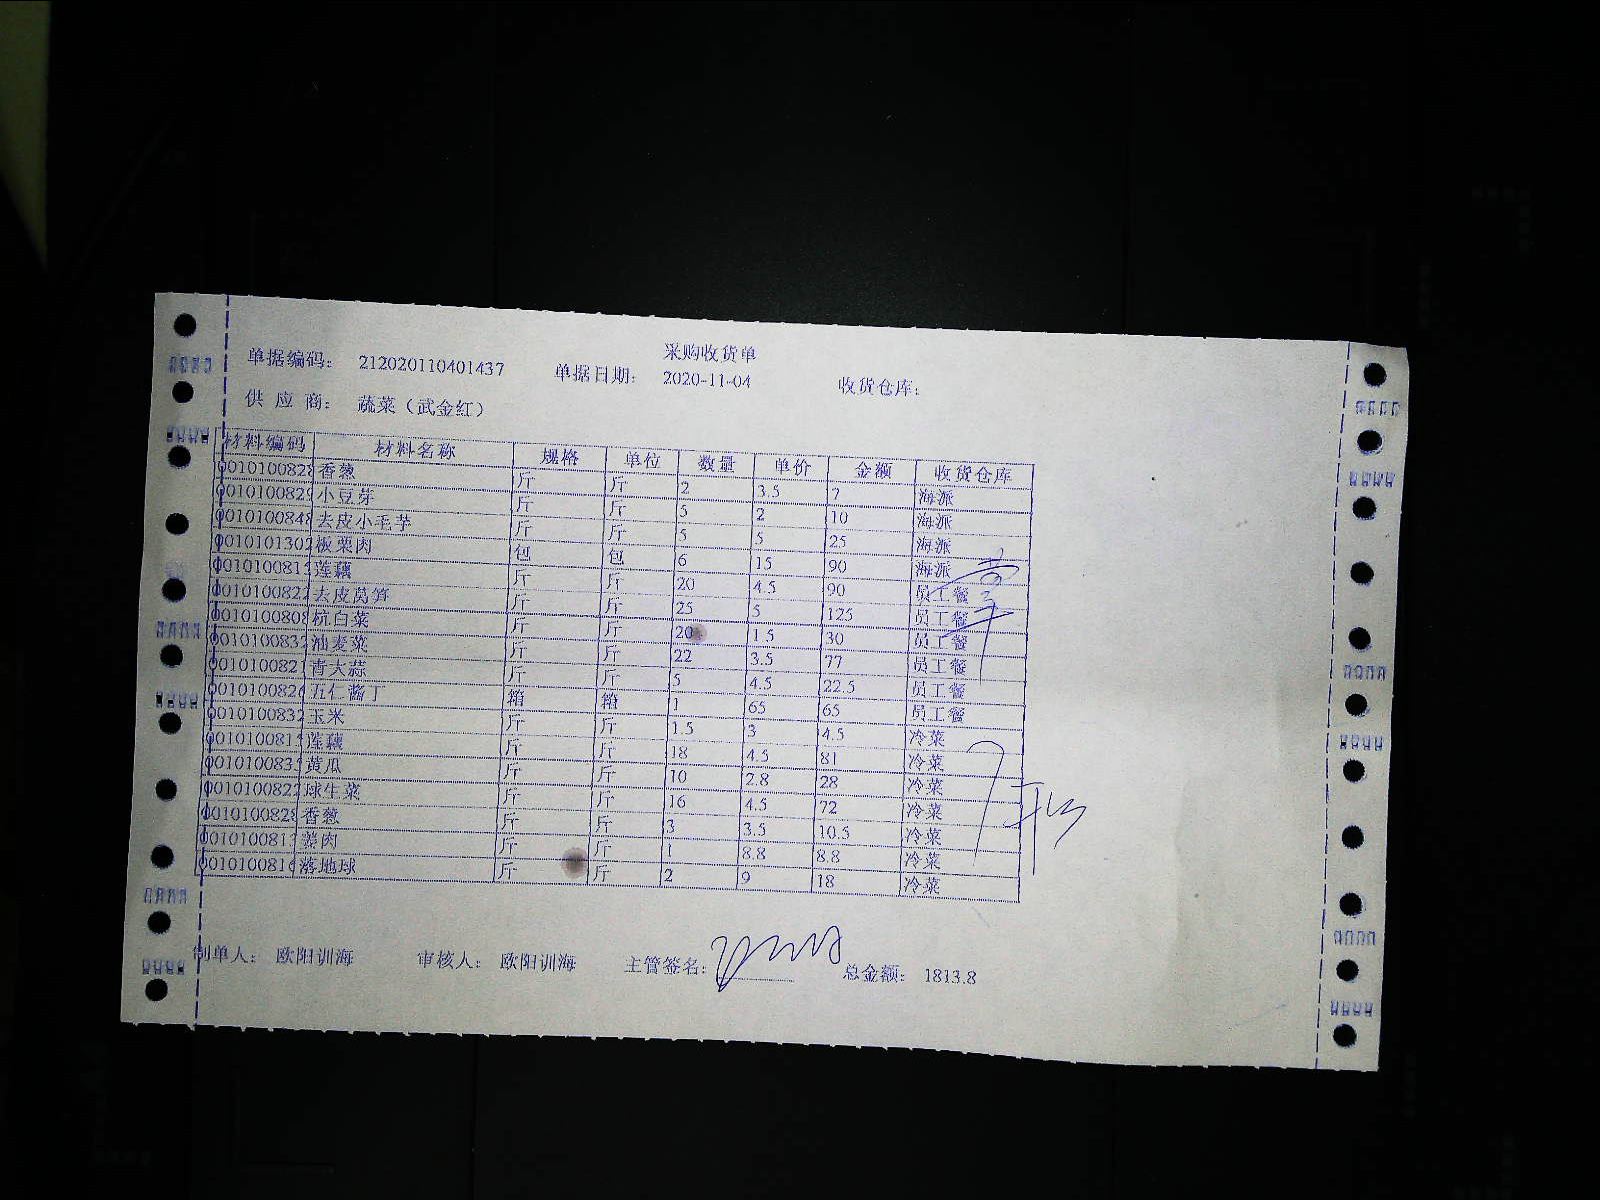 采购收货单
单据编码： 212020110401437 单据日期： 2020-11-04 收货仓库：
供 应 商： 蔬菜（武金红）
材料编码 材料名称 规格 单位 数量 单价 金额 收货仓库
0010100828 香葱 斤 斤 2 3.5 7 海派
001010082 小豆芽 斤 斤 5 2 10 海派
001010084 去皮小毛芋 斤 斤 5 5 25 海派
001010130 板栗肉 包 包 6 15 90 海派
001010081 莲藕 斤 斤 20 4.5 90 员工餐
001010082 去皮莴笋 斤 斤 25 5 125 员工餐
001010080 杭白菜 斤 斤 20 1.5 30 员工餐
001010083 油麦菜 斤 斤 22 3.5 77 员工餐
001010082 青大蒜 斤 斤 5 4.5 22.5 员工餐
001010082 五仁酱丁 箱 箱 1 65 65 员工餐
001010083 玉米 斤 斤 1.5 3 4.5 冷菜
001010081 莲藕 斤 斤 18 4.5 81 冷菜
001010083 黄瓜 斤 斤 10 2.8 28 冷菜
001010082 球生菜 斤 斤 16 4.5 72 冷菜
001010082 香葱 斤 斤 3 3.5 10.5 冷菜
001010081 姜肉 斤 斤 1 8.8 8.8 冷菜
001010081 落地球 斤 斤 2 9 18 冷菜
制单人： 欧阳训海 审核人： 欧阳训海 主管签名： 总金额： 1813.8